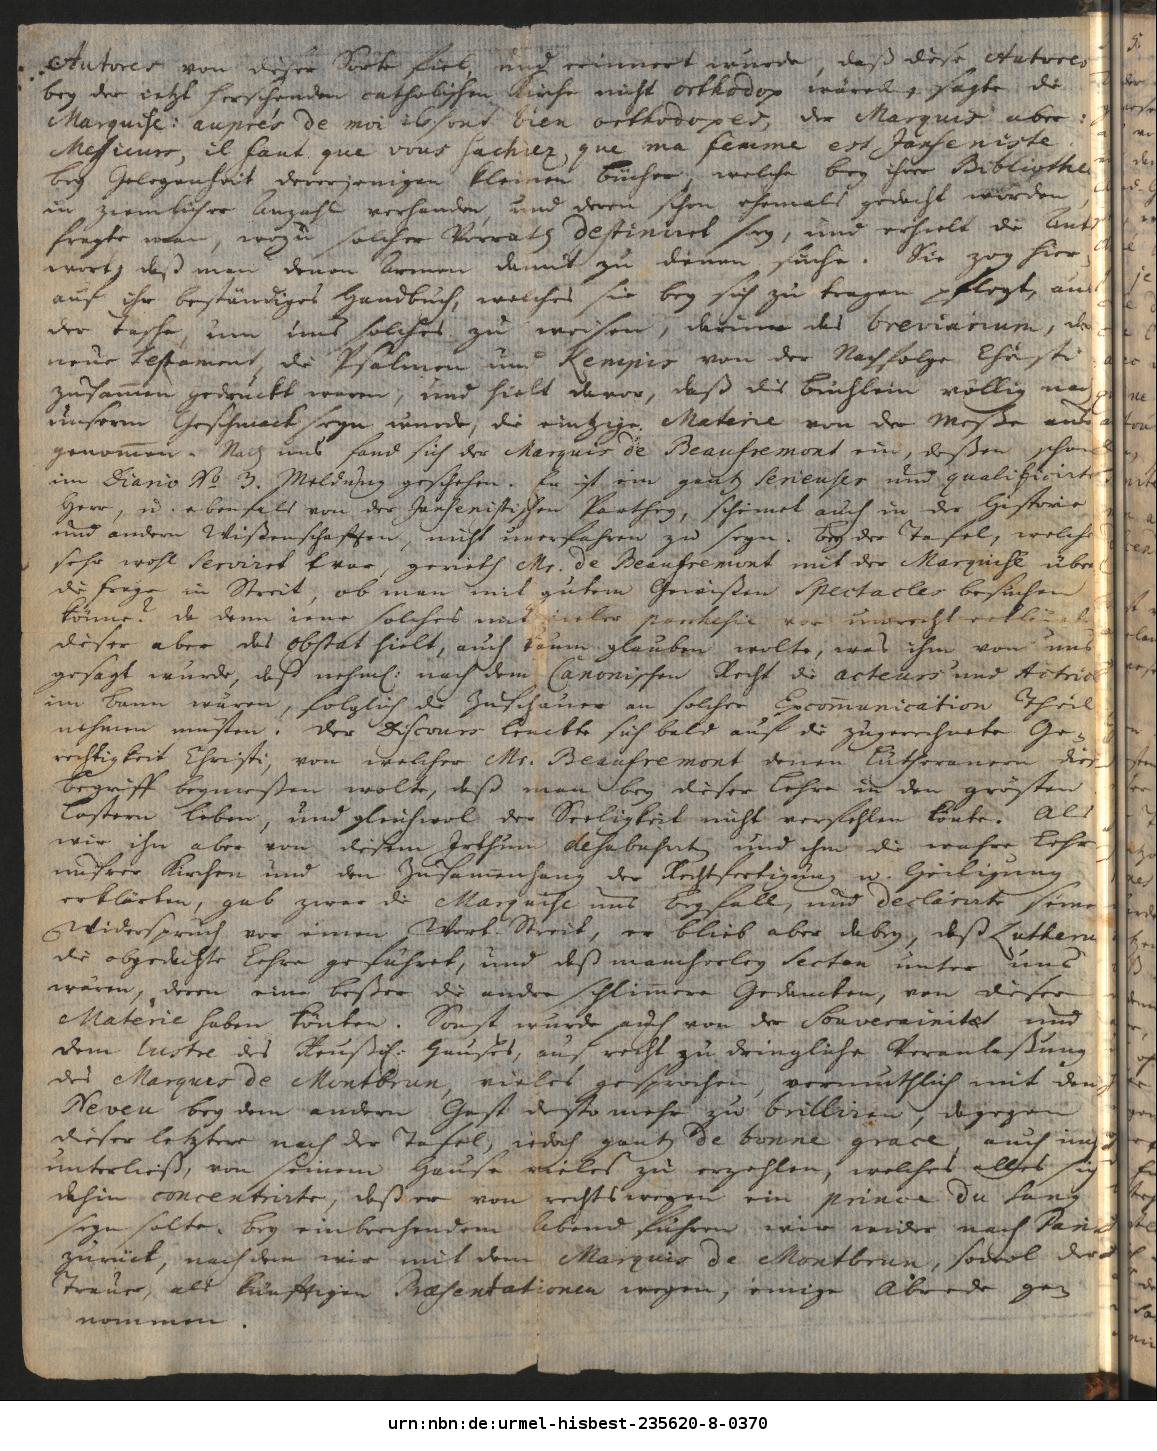 Autores von dieser Sorte fiel, und erinnert wurde, daß diese Autores
bey der ietzt herschenden catholischen Kirche nicht orthodox wären, sagte die
Marquise: auprés de moi ils sont bien orthodoxes, der Marquis aber:
Messieurs, il faut que vous sachiez que ma femme est Janseniste.
bey Gelegenheit dererjenigen kleinen Bücher, welche bey ihrer Bibliothec
in ziemlicher Anzahl verhanden, und deren schon ehemals gedacht worden,
fragte man, wozu solcher Vorrath destiniret sey, und erhielt die Ant-
wort, daß man denen Armen damit zu dienen suche. Sie zog hier-
auf ihr beständiges Handbuch, welches sie bey sich zu tragen pflegt, aus
der Tasche, um uns solches zu weisen, darinne das breviarium, das
neue Testament, die Psalmen und Kempis von der Nachfolge Christi
zusammen gedruckt waren, und hielt davor, daß dis Büchlein völlig nach
unserm Geschmack seyn würde, die eintzige Materie von der Messe aus-
genommen. Nach uns fand sich der Marquis de Beaufremont ein, deßen schon
im Diario No. 3. Meldung geschehen. Er ist ein gantz serieuser und qualificirter
Herr, u. ebenfals von der Jansenistischen Parthey, scheinet auch in der Historie
und andern Wißenschafften, nicht unerfahren zu seyn. Bey der Tafel, welche
sehr wohl serviret war, gerieth Mr. de Beaufremont mit der Marquise über
die Frage in Streit, ob man mit gutem Gewißen Spectacles besuchen
könne? da denn iene solches mit vieler parrhesie vor unrecht erklärte
dieser aber das obstat hielt, auch kaum glauben wolte, was ihm von uns
gesagt wurde, daß nehml: nach dem Canonischen Recht die acteurs und Actrices
im Bann wären, folglich die Zuschauer an solcher Excommunication Theil
nehmen müsten. Der Discours lenckte sich bald auf die zugerechnete Ge-
rechtigkeit Christi, von welcher Mr. Beaufremont denen Lutheranern diesen
Begriff beymeßen wolte, daß man bey dieser Lehre in den grösten
Lastern leben, und gleichwol der Seeligkeit nicht verfehlen könte. Als
wir ihn aber von diesem Irthum desabusirt, und ihm die wahre Lehre
unsrer Kirchen und den Zusammenhang der Rechtfertigung u. Heiligung
erklärten, gab zwar die Marquise uns Beyfall, und declarirte seinen
Widerspruch vor einen Wort-Streit, er blieb aber dabey, daß Lutherus
die obgedachte Lehre geführet, und daß mancherley Secten unter uns
wären, deren eine beßer die andre schlimmere Gedancken, von dieser
Materie haben könten. Sonst wurde auch von der Souverainität und
dem lustre des Reußisch: Hauses, auf recht zu dringliche Veranlaßung
des Marquis de Montbrun, vieles gesprochen, vermuthlich mit den
Neveu bey dem andern Gast desto mehr zu brilliren, dagegen
dieser letztere nach der Tafel, iedoch gantz de bonne grace, auch nicht
unterließ, von seinem Hause vieles zu erzehlen, welches alles sich
dahin concentrirte, daß er von rechtswegen ein prince du sang
seyn solte. Bey einbrechendem Abend fuhren wir wider nach Paris
zurück, nachdem wir mit dem Marquis de Montbrun, sowol der
Trauer, als künfftigen Præsentationen wegen, einige Abrede ge-
nommen.
urn:nbn:de:urmel-hisbest-235620-8-0370